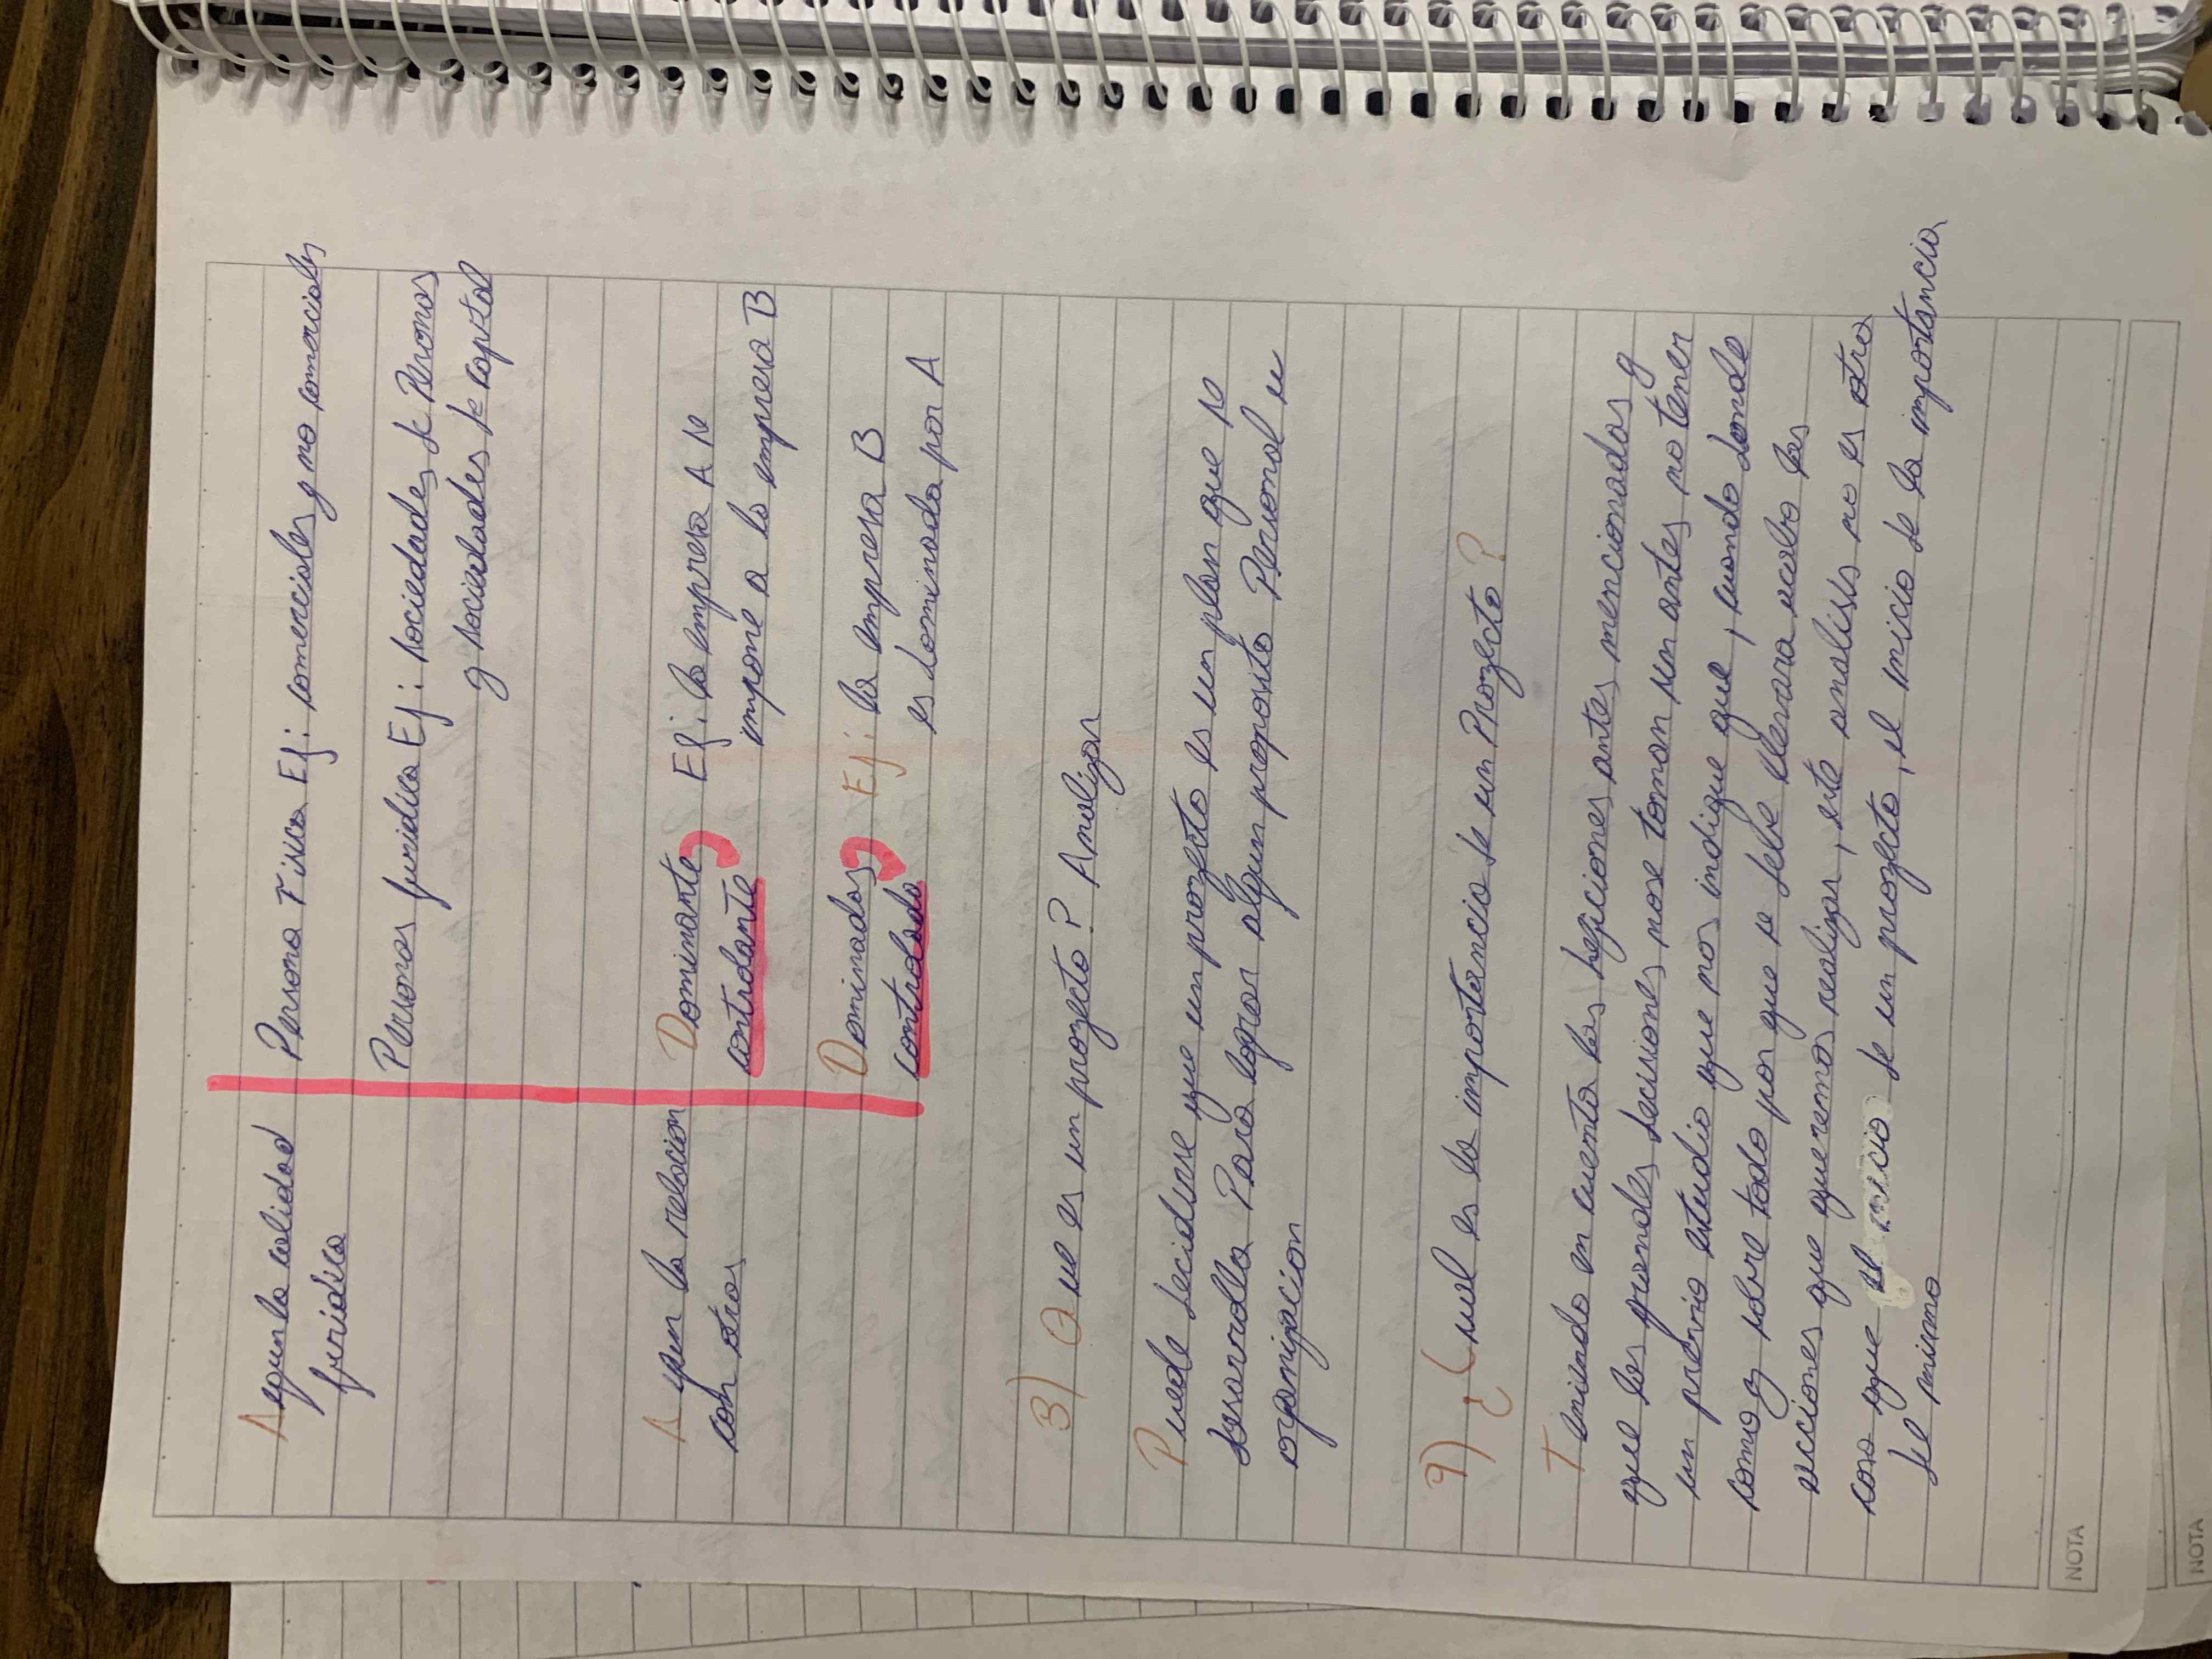 Segun la calidad juridica
Persona Fisica Ej: comerciales y no comerciales
Personas juridica Ej: sociedades de Personas
y sociedades de capital
Segun la relacion
con otras
Dominante Ej: la empresa A se
controlante impone a la empresa B
Dominadas Ej: la empresa B
controlada es dominada por A
3) Que es un proyecto? Analizar
Puede decidirse que un proyecto es un plan que se
desarrolla Para lograr algun proposito Personal u
organizacion
4) ¿Cual es la importancia de un Proyecto?
Teniendo en cuenta las deficiones antes mencionados y
que las grandes decisiones no se toman sin antes no tener
un previo estudio que nos indique que, cuando donde
como y sobre todo por que se debe llevara acabo las
acciones que queremos realizar, este analisis no es otra
cosa que el inicio de un proyecto, el inicio de la importancia
del mismo
NOTA
NOTA